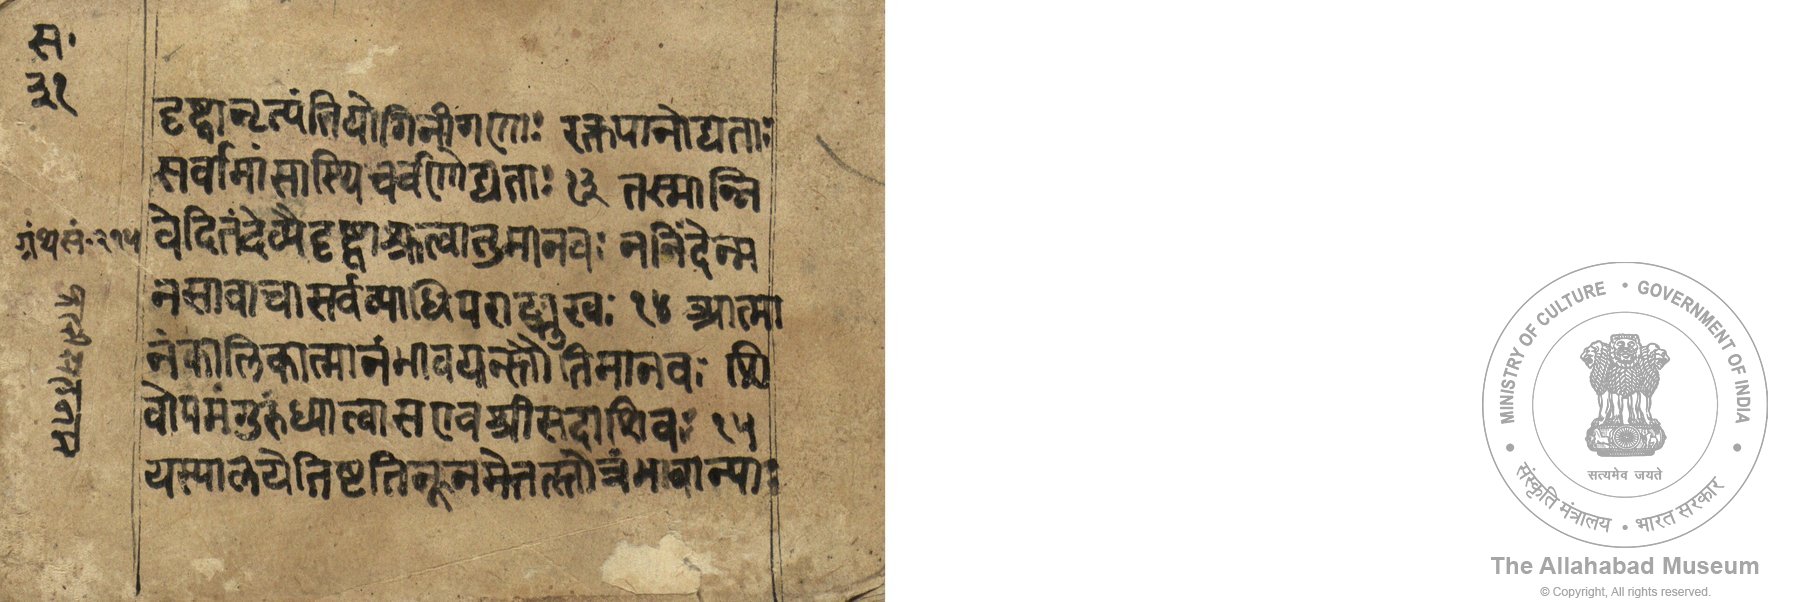 स॰
३१
दृष्ट्वा नृत्यंति योगिनीगणाः रक्तपानोद्यताः
सर्वा मांसास्थिचर्वणोद्यताः १३ तस्मान्नि
वेदितं देव्यै दृष्ट्वा श्रुत्वा तु मानवः न निंदेन्म
ग्रंथ सं॰ २१५
नसा वाचा सर्वव्याधिपराङ्मुखः १४ आत्मा
नं कालिकात्मानं भावयन्स्तौति मानवः शि
वोपमं गुरुं ध्यात्वा स एव श्रीसदाशिवः १५
यस्यालये तिष्टति नूनमेतत्स्तोत्रं भवान्याः
MINISTRY OF CULTURE • GOVERNMENT OF INDIA
सत्यमेव जयते
संस्कृति मंत्रालय • भारत सरकार
The Allahabad Museum
© Copyright, All rights reserved.